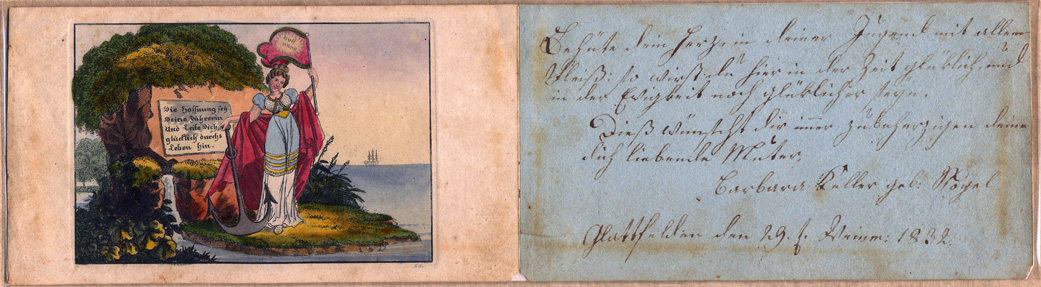 Die Hoffnung sey
Deine Führerin
Und Leite Dich
glücklich durchs
Leben hin.
Behüte dein Herze in deiner Jugend mit allem
Fleiß: so wirst du hier in der Zeit glüklich, und
in der Ewigkeit noch glüklicher seyn.
Dieß wünscht dir immer zubeherzigen deine
dich liebende Muter.
Barbara Keller geb: Vogel
Glattfelden den 29. 1832.